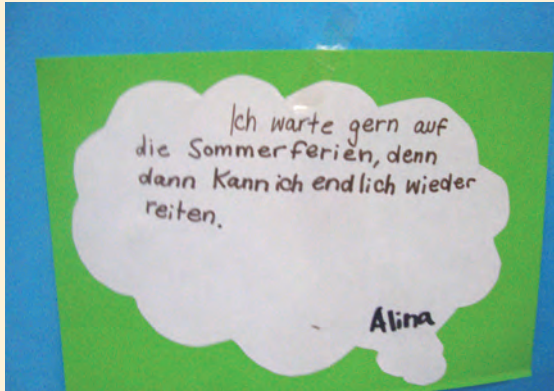 Ich warte gern auf
die Sommerferien, denn
dann kann ich endlich wieder
reiten.
Alina